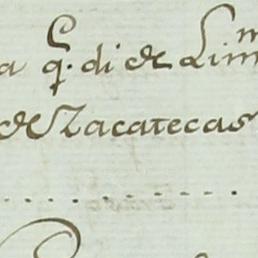 a q.ᵉ di de Lim
de Zacatecas